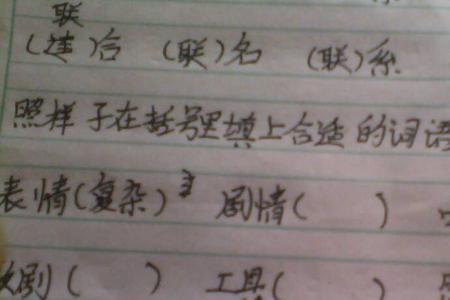 联
(连)合 (联)名 (联)系
照样子在括号里填上合适的词语
表情(复杂) 剧情( )
剧( ) 工具( )